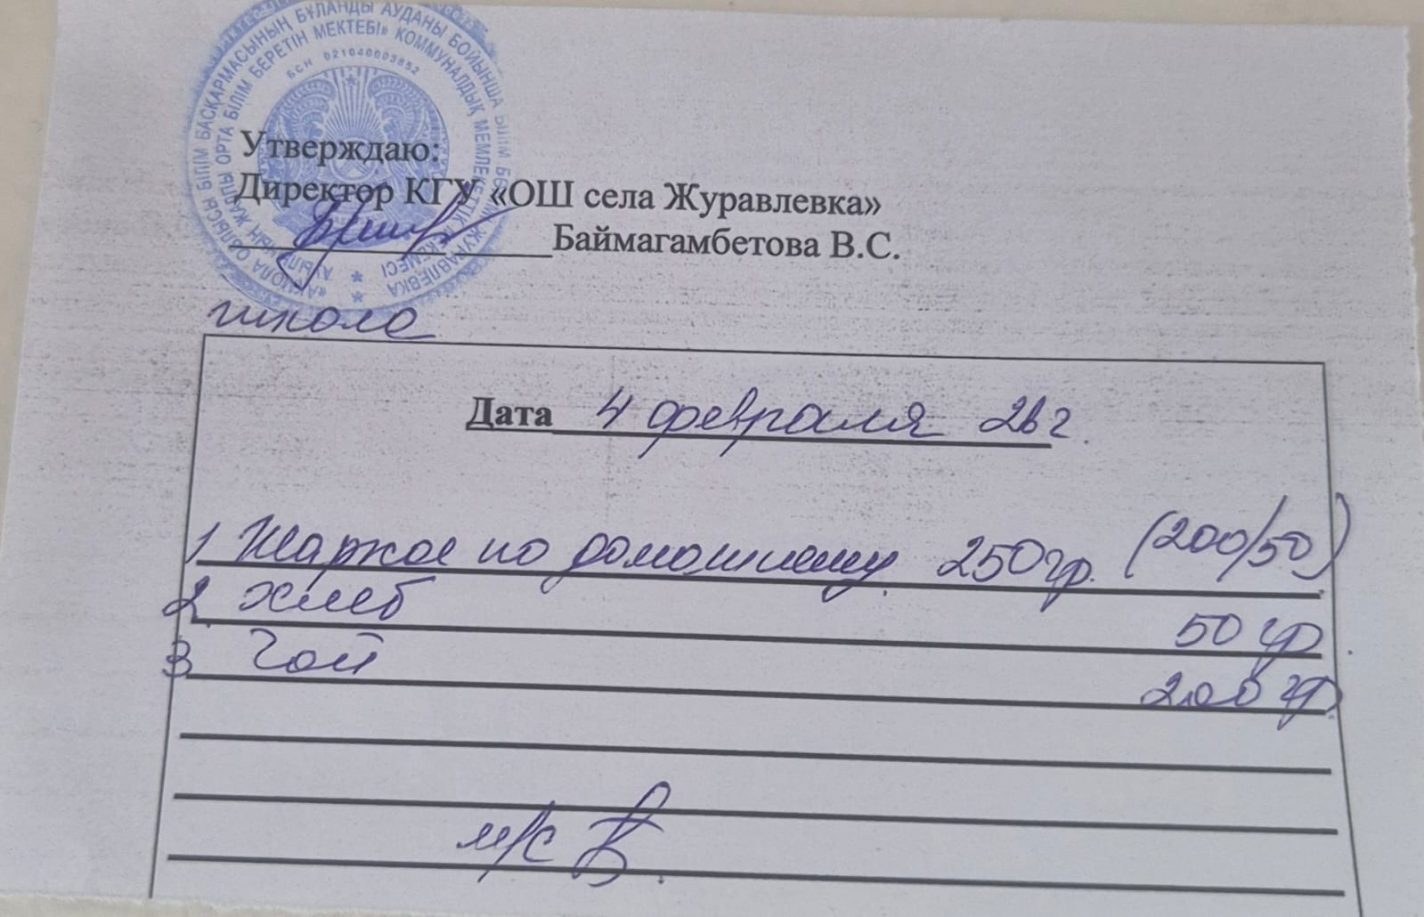 «АҚМОЛА ОБЛЫСЫ БІЛІМ БАСҚАРМАСЫНЫҢ БҰЛАНДЫ АУДАНЫ БОЙЫНША БІЛІМ ЖУРАВЛЕВКА
АУЫЛЫНЫҢ ЖАЛПЫ ОРТА БІЛІМ БЕРЕТІН МЕКТЕБІ» КОММУНАЛДЫҚ МЕМЛЕКЕТТІК МЕКЕМЕСІ
БСН 021040003852
Утверждаю:
Директор КГУ «ОШ села Журавлевка»
Баймагамбетова В.С.
школа
Дата 4 февраля 26 г.
1 Жаркое по домашнему 250гр. (200/50)
2. хлеб 50 гр.
3 Чай 200 гр
м/с